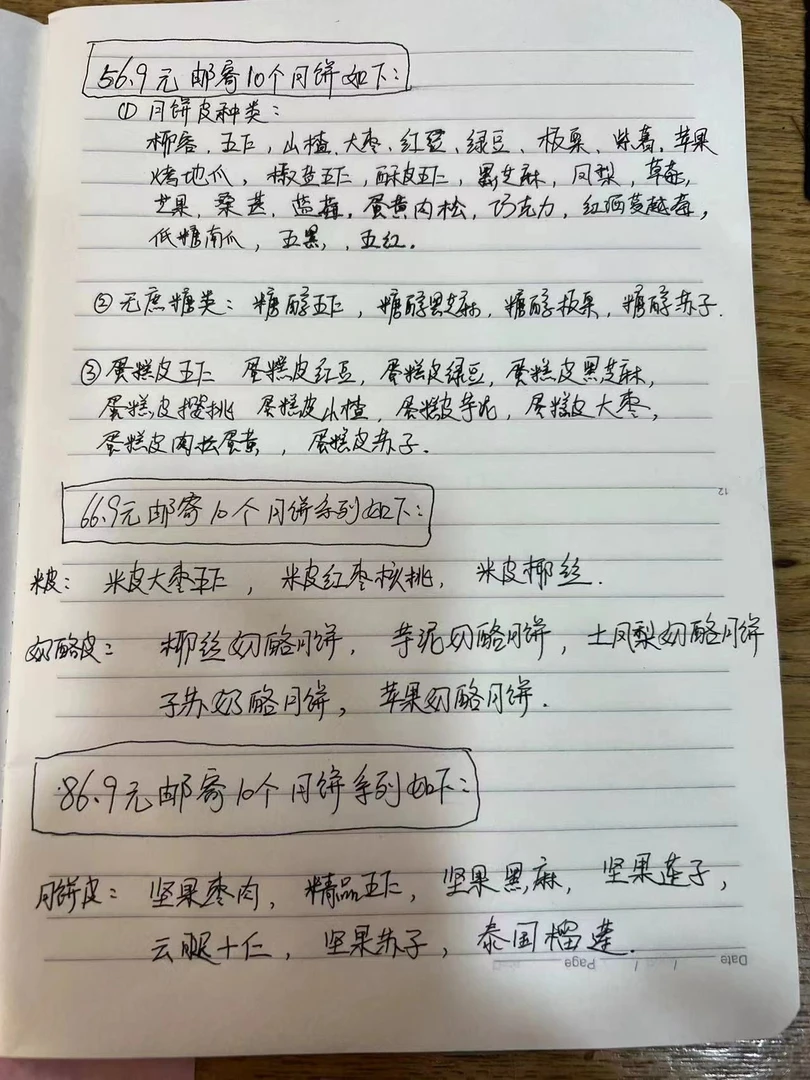 56.9元邮寄10个月饼如下：
① 月饼皮种类：
椰蓉、五仁，山楂、大枣、红豆、绿豆、板栗、紫薯、苹果
烤地瓜，椒盐五仁，酥皮五仁，黑芝麻，凤梨，草莓，
芒果，桑葚，蓝莓，蛋黄肉松，巧克力，红酒蔓越莓，
低糖南瓜，五黑，五红．
② 无庶糖类：糖醇五仁，糖醇黑芝麻，糖醇板栗，糖醇苏子．
③ 蛋糕皮五仁 蛋糕皮红豆，蛋糕皮绿豆，蛋糕皮黑芝麻，
蛋糕皮樱桃 蛋糕皮山楂，蛋糕皮芋泥，蛋糕皮大枣，
蛋糕皮肉松蛋黄，蛋糕皮苏子．
12
66.9元邮寄10个月饼系列如下：
米皮：米皮大枣五仁，米皮红枣核桃，米皮椰丝．
奶酪皮：椰丝奶酪月饼，芋泥奶酪月饼，土凤梨奶酪月饼
子苏奶酪月饼，苹果奶酪月饼．
86.9元邮寄10个月饼系列如下：
月饼皮：坚果枣肉，精品五仁，坚果黑麻，坚果莲子，
云腿十仁，坚果苏子，泰国榴莲．
Date / / Page